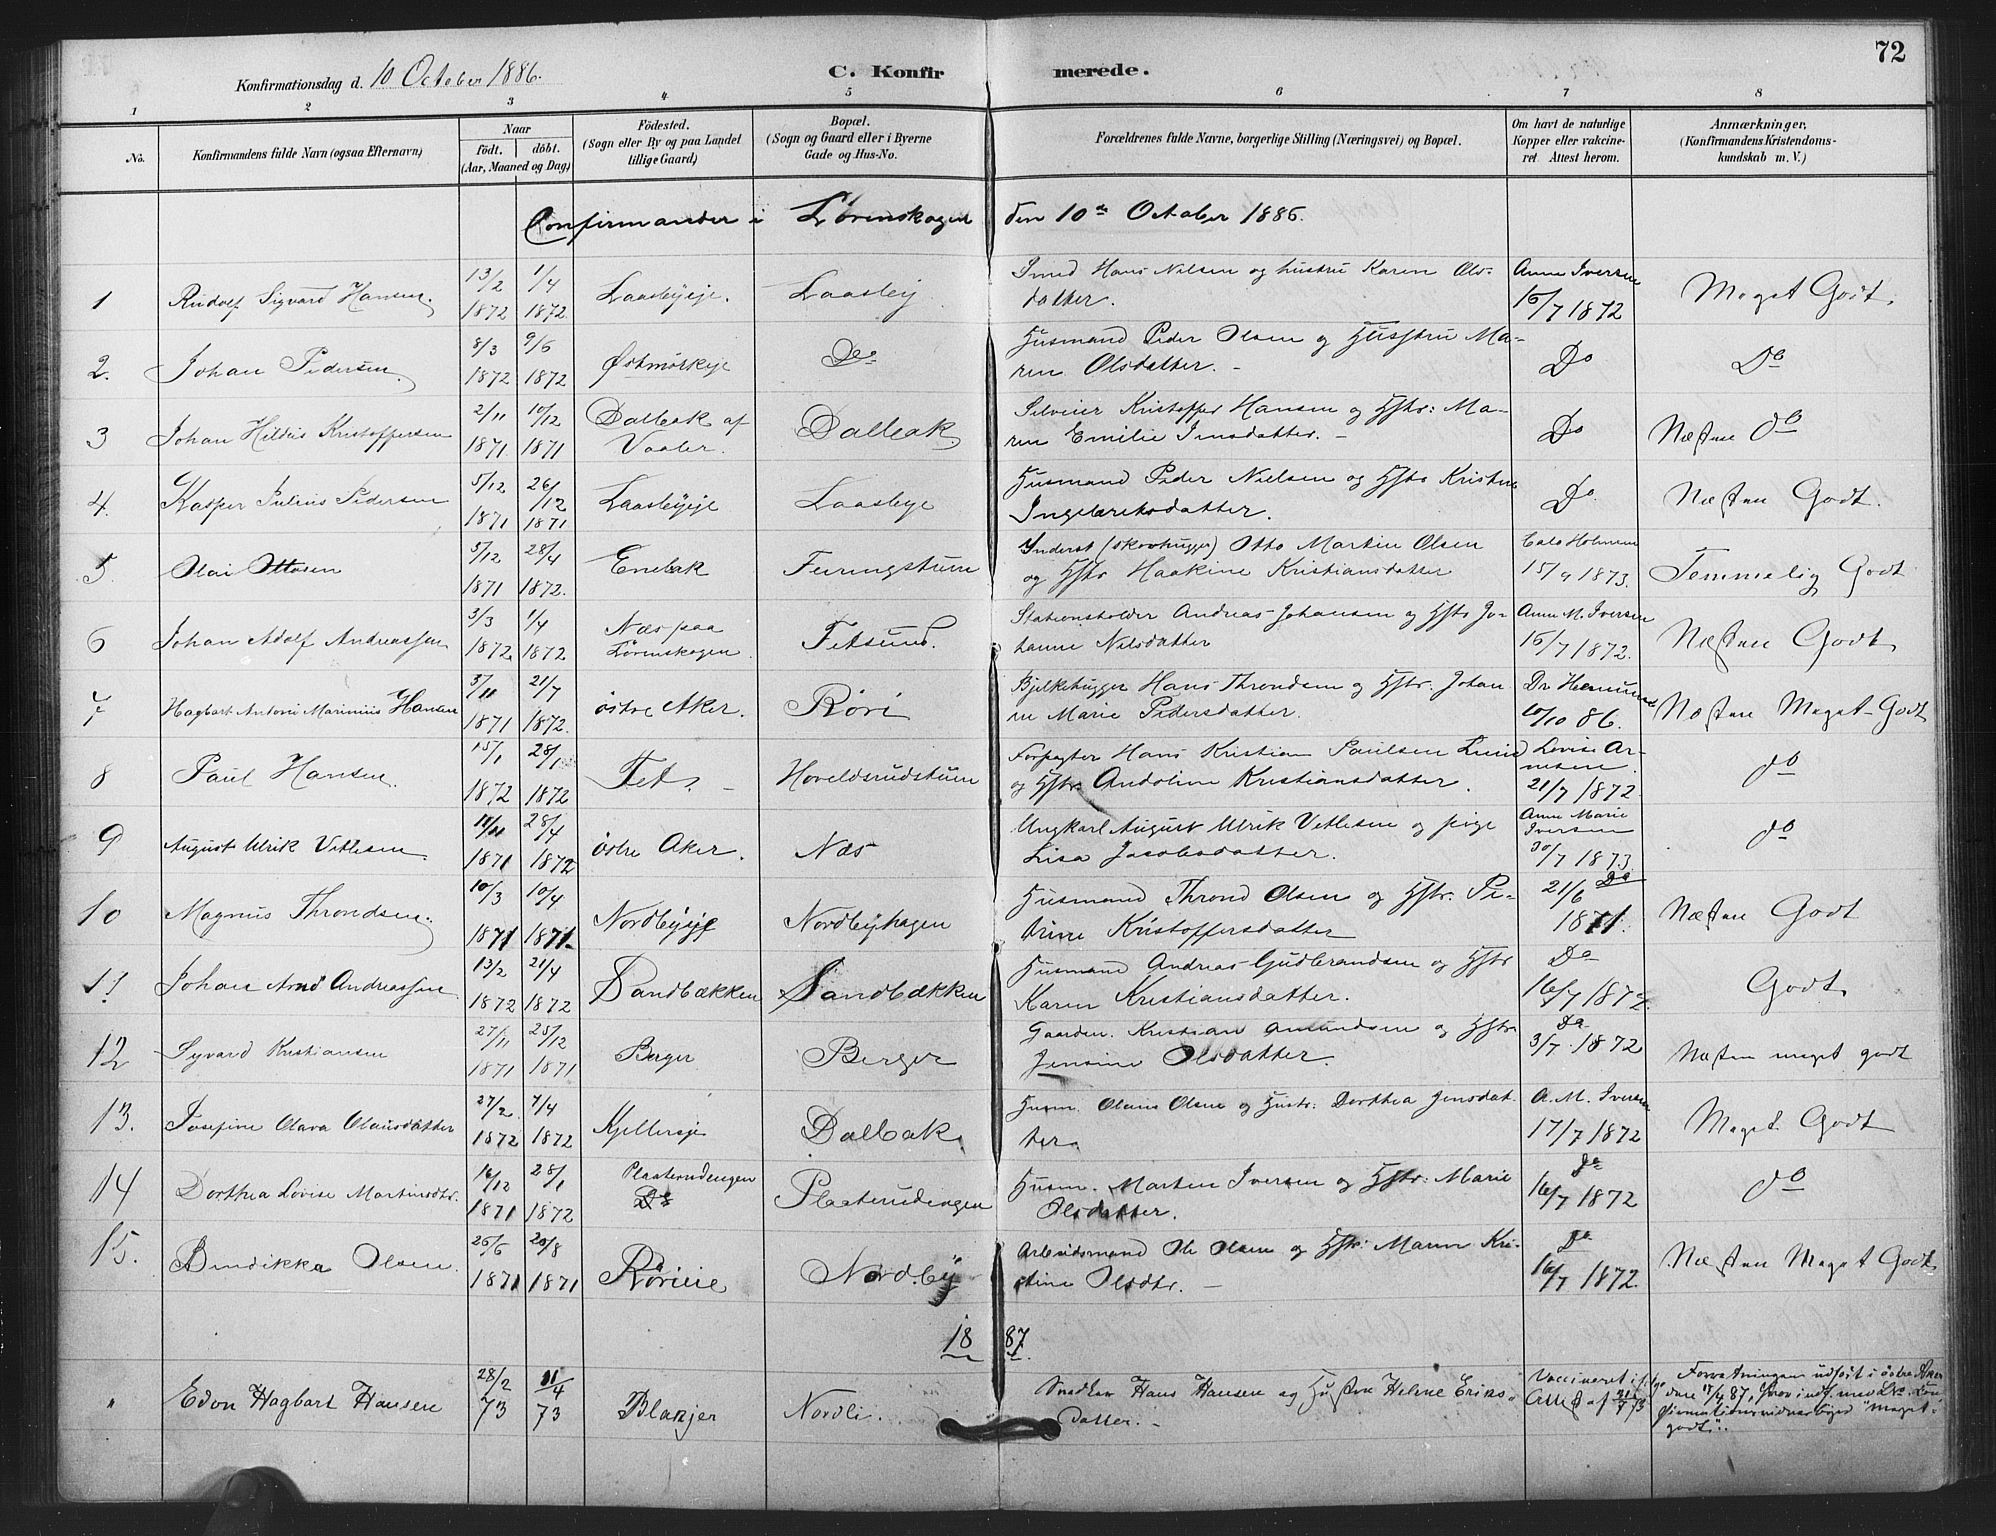 72
Konfirmationsdag d. 10 October 1886.
C. Konfirmerede.
1 2 3 4 5 6 7 8
No.
Konfirmandens fulde Navn (ogsaa Efternavn)
Naar
født. døbt.
(Aar, Maaned og Dag)
Fødested.
(Sogn eller By og paa Landet
tillige Gaard)
Bopæl.
(Sogn og Gaard eller i Byerne
Gade og Hus-No.
Forældrenes fulde Navne, borgerlige Stilling (Næringsvei) og Bopæl.
Om havt de naturlige
Kopper eller vakcine-
ret. Attest herom.
Anmærkninger.
(Konfirmandens Kristendoms-
kundskab m. V.)
Confirmander i Lørenskogen den 10de October 1886.
1 Rudolf Sigvard Hansen. 13/2 1872 1/4 1872. Laasbyeje. Laasby Smed Hans Nilsen og hustru Karen Ols-
datter. Anne Iversen 16/7 1872 Meget Godt.
2. Johan Pedersen. 8/3 1872 9/6 1872 Østmorkeje Do Husmand Peder Olsen og Hustru Ma-
ren Olsdatter. - Do Do
3 Johan Hildus Kristoffersen 2/11 1871. 10/12 1871 Dalbak af
Vaaler. Dalbak. Selveier Kristoffer Hansen og Hstr: Ma-
ren Emilie Jensdatter. - Do Næsten do
4. Kasper Julius Pedersen 5/12 1871 26/12 1871 Laasbyeje Laasbye Husmand Peder Nielsen og Hstr Kristine
Ingebretsdatter. Do. Næsten Godt.
5. Olai Ottosen 5/12 1871 28/4 1872. Enebak Inderst (skovhugger) Otto Martin Olsen
og Hstr Haakine Kristiansdatter 15/9 1873. Temmelig Godt
6 Johan Adolf Andreassen 3/3 1872. 1/4 1872 Næs paa
Lørenskogen. Fetsund. Stationsholder Andreas Johansen og Hstr Jo-
hanne Nilsdatter Anne M. Iversen 16/7 1872. Næsten Godt
7 Hagbart Antoni Marinius Hansen 3/11 1871 21/7 1872. østre Aker. Røri Bjelkehugger Hans Throndsen og Hstr. Johan
ne Marie Pedersdatter. Dr 10/10 86. Næsten Meget Godt
8 Paul Hansen. 15/1 1872 28/1 1872 Fet. - Hoveldsrudstuen Forpagter Hans Kristian Paulsen Lund
og Hstr Andoline Kristiansdatter. Lovise Ar-
ntsen. 21/7 1872. do
9 August Ulrik Vetlesen. 11/11 1871 28/4 1872 østre Aker. Næs Ungkarl August Ulrik Vetlesen og pige
Lisa Jacobsdatter. Anne Marie
Iversen 30/7 1873. do
10 Magnus Throndsen. 10/3 1871 10/4 1871. Nordbyeje Nordbyhagen Husmand Thrond Olsen og Hstr. Pe-
trine Kristoffersdatter Do 21/6 1871. Næsten Godt
11 Johan Arnt Andreassen 13/2 1872 21/4 1872 Sandbækken Sandbækken Husmand Andreas Gudbrandsen og Hstr
Karen Kristiansdatter. Do 16/7 1872. Godt
12 Sigvard Kristiansen 27/11 1871 25/12 1871 Berger Berger Gaardm. Kristian Amundsen og Hstr.
Jensine Olsdatter. Do 3/7 1872 Næsten meget godt
13. Josefine Olava Olausdatter 27/2 1872 7/4 1872 Kjellereje Dalbak. Husm. Olaus Olsen og Hustr: Dorthea Jensdat-
ter. A. M. Iversen 17/7 1872 Meget Godt
14 Dorthea Lovise Martinsdtr. 16/12 1871 28/1 1872 Plaaterudengen
Do Plaaterudengen Husm. Martin Iversen og Hstr: Marie
Olsdatter. Do 16/7 1872 do
15. Bendikka Olsen. 26/6 1871 20/8 1871 Rørieie Nordby Arbeidsmand Ole Olsen og Hstr: Maren Kri-
stine Olsdtr. - Do 16/7 1872. Næsten Meget Godt
1887.
" Edon Hagbart Hansen 28/2 73 11/4 73 Blakjer Nordli. Hans Hansen og Hustru Helene Eriks-
datter. - Vaccineret ifølge
Attest af 21/7 73 Forretningen udført i østre Aker
den 17/4 87,
"meget
godt".